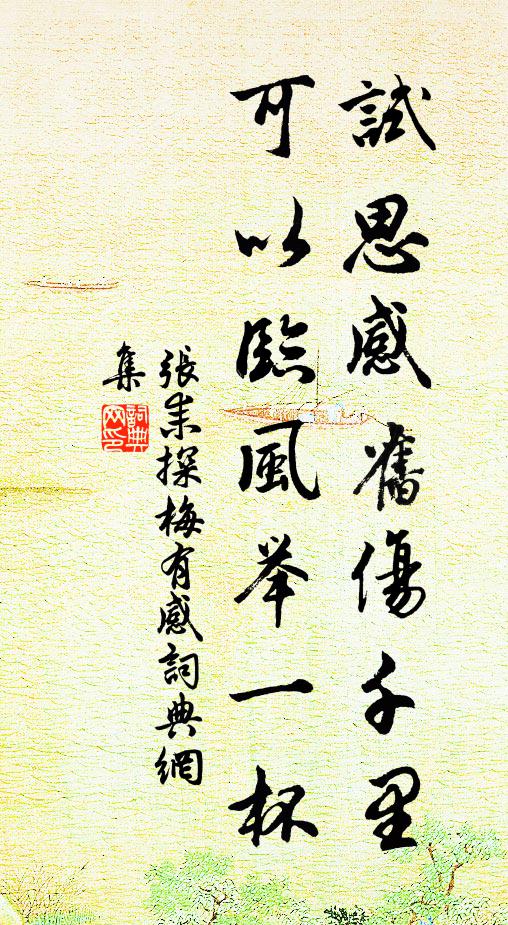 試思感舊傷千里
可以臨風举一杯
張耒探梅有感詞典網
集
詞典
网印